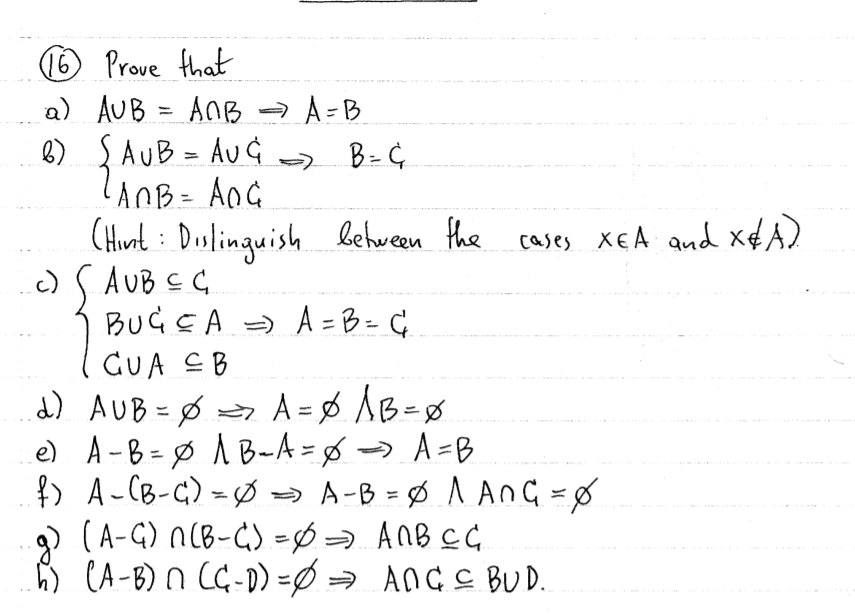 ⑯ Prove that
a) A∪B = A∩B ⟹ A=B
b) { A∪B = A∪C ⟹ B=C
A∩B = A∩C
(Hint : Distinguish between the cases x∈A and x∉A).
c) { A∪B ⊆ C
B∪C ⊆ A ⟹ A=B=C
C∪A ⊆ B
d) A∪B = ∅ ⟹ A=∅ ∧ B=∅
e) A−B=∅ ∧ B−A=∅ ⟹ A=B
f) A−(B−C)=∅ ⟹ A−B=∅ ∧ A∩C=∅
g) (A−C)∩(B−C)=∅ ⟹ A∩B⊆C
h) (A−B)∩(C−D)=∅ ⟹ A∩C⊆B∪D.